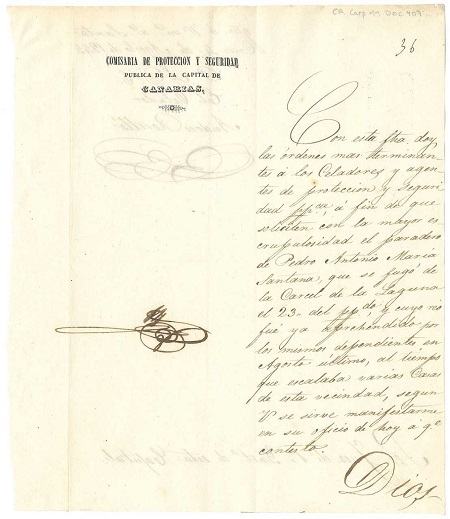 CR Carp 44 DOC 407
36
COMISARIA DE PROTECCION Y SEGURIDAD
PUBLICA DE LA CAPITAL DE
CANARIAS.
Con esta fha. doy
las órdenes mas terminan
tes á los Celadores y agen
tes de proteccion y seguri
dad ppca, á fin de que
soliciten con la mayor es
crupulosidad el paradero
de Pedro Antonio Maria
Santana, que se fugó de
la Carcel de la Laguna
el 23 del ppdo, y cuyo
fué ya aprehendido por
los mismos dependientes en
Agosto último, al tiempo
que escalaba varias Casas
de esta vecindad, segun
V se sirve manifestarme
en su oficio de hoy á qe
contesto.
Dios